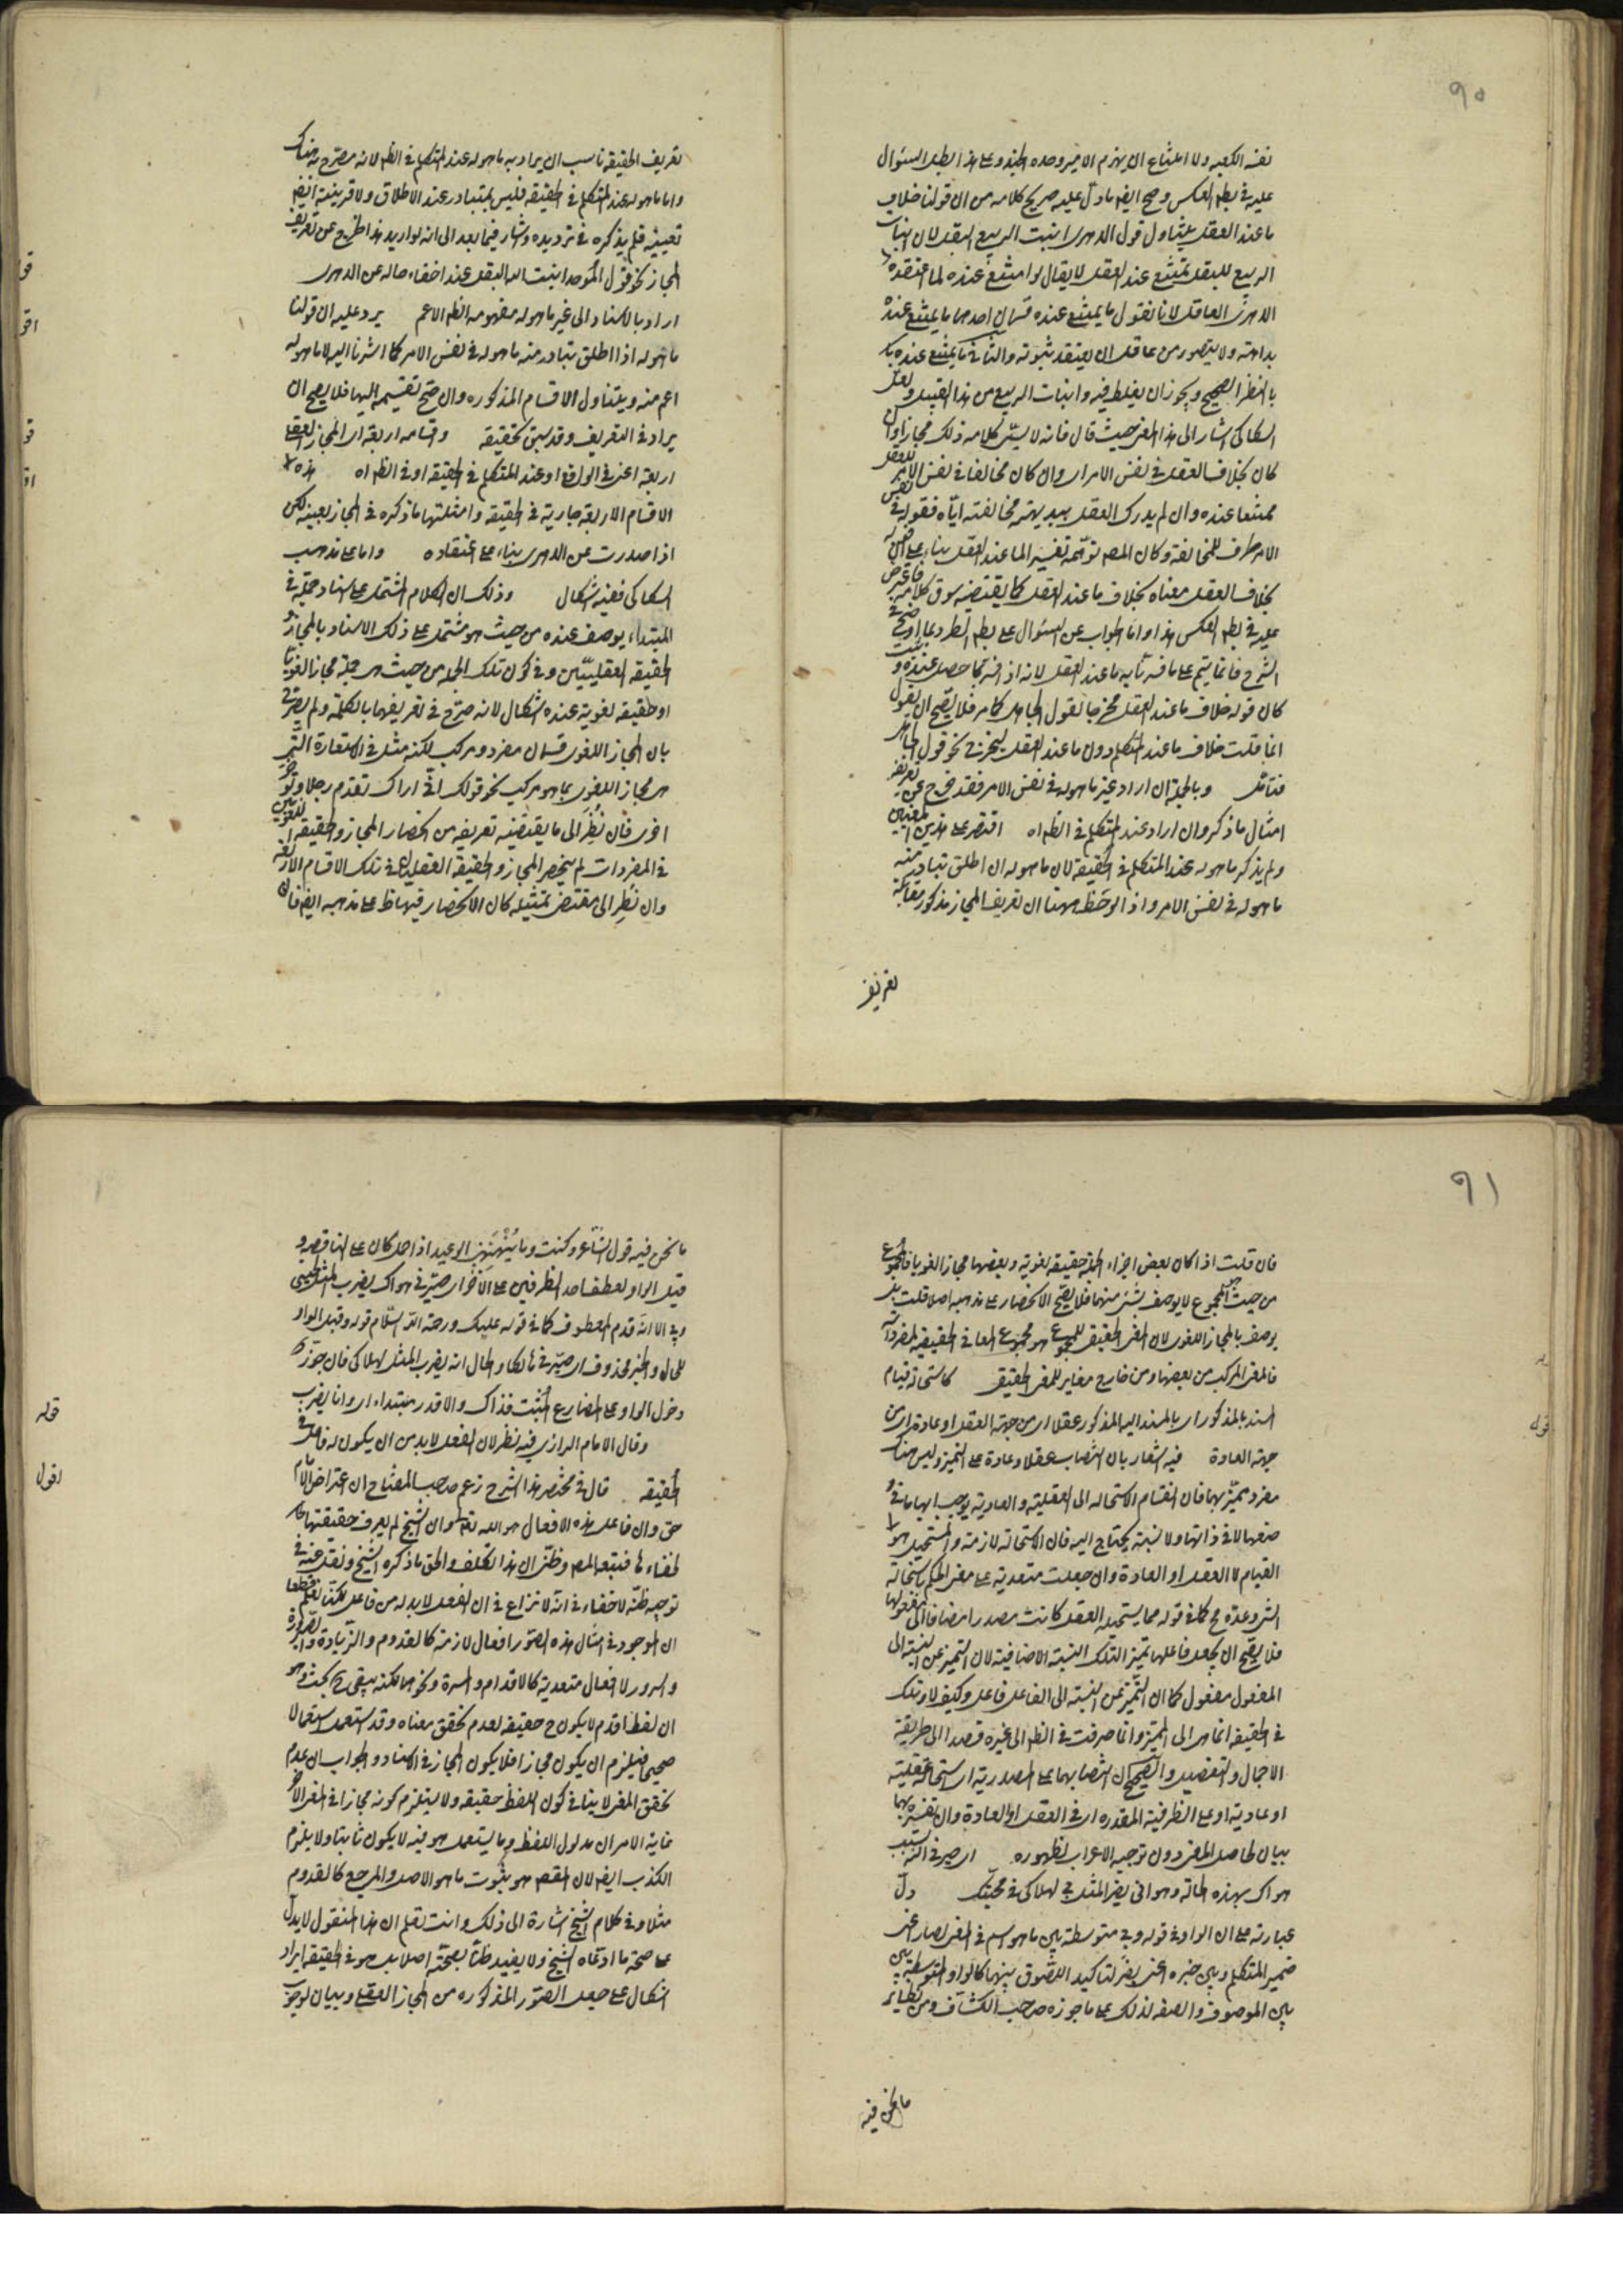 ٩٠
نفسه الكعبه ولا امتناع ان يهزم الامير وحده الجند وعلى هذا بطل السئوال
عليه في بطم العكس وصح ايضا ما دل عليه صريح كلامه من ان قولنا خلاف
ما عند العقل يتناول قول الدهرى انبت الربيع البقل لان انبات
الربيع للبقل يمتنع عند العقل لا يقال لو امتنع عنده لما اعتقده
الدهرى العاقل لانا نقول ما يمتنع عنده قسمان احدهما ما يمتنع عنده
بداهة ولا يتصور من عاقل ان يعتقد ثبوته والثانى ما يمتنع عنده
بالنظر الصحيح ويجوز ان يغلط فيه وانبات الربيع من هذا القبيل ولعل
السكاكى اشار الى هذا المعنى حيث قال فانه لا يسمى كلامه ذلك مجازا وان
كان بخلاف العقل في نفس الامر اى وان كان مخالفا في نفس الامر للعقل
ممتنعا عنده وان لم يدرك العقل ببديهته مخالفته اياه فقوله في نفس
الامر ظرف للمخالفة وكان المصم توهمه تفسير الما عند العقل بناء على ان قوله
بخلاف العقل معناه بخلاف ما عند العقل كما يقتضيه سوق كلامه فاعترض
عليه في بطم العكس هذا واما الجواب عن السئوال على بطم الطرد بما اوضح في
الشرح فانما يتم على ما فسرنا به ما عند العقل لانه اذا فسر بما حصل عنده وثبت
كان قوله خلاف ما عند العقل مخرجا لقول الجاهل كما مر فلا يصح ان يقول
انما قلت خلاف ما عند المتكلم دون ما عند العقل ليخرج نحو قول الجاهل
فتامل وبالجملة ان اراد غير ما هو له في نفس الامر فقد خرج عن تعريفه
امثال ما ذكر وان اراد عند المتكلم في الظم اه اقتصر على هذين المعنيين
ولم يذكر ما هو له عند المتكلم في الحقيقة لان ما هو له ان اطلق تبادر منه
ما هو له في نفس الامر واذا لوحظ ههنا ان تعريف المجاز مذكور بمقابلة
تعريف
تعريف الحقيقة ناسب ان يراد به ما هو له عند المتكلم في الظم لانه مصرح به هناك
واما ما هو له عند المتكلم في الحقيقة فليس بمتبادر عند الاطلاق ولا قرينة ايضا
تعيينه فلم يذكره في ترديده واشار فيما بعد الى انه لو اريد هذا الخرج عن تعريف
المجاز نحو قول الموحد انبت الله البقل عند اخفاء حاله عن الدهرى
اراد بالاسناد الى غير ما هو له مفهومه الظم الاعم يرد عليه ان قولنا
ما هو له اذا اطلق يتبادر منه ما هو له في نفس الامر كما اشرنا اليه لا ما هو له
اعم منه ويتناول الاقسام المذكوره وان صح تقسيمه اليها فلا يصح ان
يراد في التعريف وقد سبق تحقيقه واقسامه اربعة اى المجاز العقلى
اربعة اعنى في الواقع او عند المتكلم في الحقيقة او في الظم اه هذه
الاقسام الاربعة جارية في الحقيقة وامثلتها ما ذكره في المجاز بعينه لكن
اذا صدرت عن الدهرى بناء على اعتقاده واما على مذهب
السكاكى ففيه اشكال وذلك ان الكلام المشتمل على اسناد جملة في
المبتداء يوصف عنده من حيث هو مشتمل على ذلك الاسناد بالمجاز و
الحقيقة العقليين وفي كون تلك الجملة من حيث هى جملة مجازا لغويا
او حقيقة لغوية عنده اشكال لانه صرح في تعريفهما بالكلمة ولم يصرح
بان المجاز اللغوى قسمان مفرد ومركب لكنه مثل في الاستعارة التى
هى مجاز اللغوى بما هو مركب نحو قولك انى اراك تقدم رجلا وتؤخر
اخرى فان نظر الى ما يقتضيه تعريفه من انحصار المجاز والحقيقة اللغويين
في المفردات لم ينحصر المجاز والحقيقة العقليان في تلك الاقسام الاربعة
وان نظر الى مقتضى تمثيله كان الانحصار فيها ظ على مذهبه ايضا فان
٩١
فان قلت اذا كان بعض اجزاء الجملة حقيقة لغوية وبعضها مجازا لغويا فالمجموع
من حيث المجموع لا يوصف بشئ منهما فلا يصح الانحصار على مذهبه اصلا قلت بل
يوصف بالمجاز اللغوى لان المعنى الحقيقى للمجموع هو مجموع المعانى الحقيقية للمفردات
فالمعنى المركب من بعضها ومن خارج مغاير للمعنى الحقيقى كاستحالة قيام
المسند بالمذكور اى بالمسند اليه المذكور عقلا اى من جهة العقل او عادة اى من
جهة العادة فيه اشعار بان انتصاب عقلا وعادة على التميز وليس هناك
مفرد مميز بهما فان انقسام الاستحاله الى العقلية والعادية يوجب ابهاما في
صفها لا في ذاتها ولا نسبة يحتاج اليه فان الاستحالة لازمة والمستحيل هو
القيام لا العقل او العادة وان جعلت متعدية على معنى الحكم باستحالة
الشئ وعده مح كما في قوله مما يستحيله العقل كانت مصدرا مضافا الى مفعولها
فلا يصح ان يجعل فاعلها تميزا لتلك النسبة الاضافية لان التميز عن النسبة الى
المفعول مفعول كما ان التميز عن النسبة الى الفاعل فاعل وكيف لا وتلك
في الحقيقة انما هى الى المميز وانما صرفت في الظم الى غيره قصدا الى طريقة
الاجمال والتفصيل والصحيح ان انتصابهما على المصدرية اى استحالة عقلية
او عادية او على الظرفية المقدره اى في العقل او العادة وان تفسيره بهما
بيان لحاصل المعنى دون توجيه الاعراب لظهوره اى صيرنى الله بسبب
هواك بهذه الحالة وهو انى يضرب المثل بى لهلاكى في محبتك دل
عبارته على ان الواو في قوله وبى متوسطة بين ما هو اسم في المعنى لصار اعنى
ضمير المتكلم وبين خبره اعنى يضرب لتاكيد اللصوق بينهما كالواو المتوسطة بين
بين الموصوف والصفه لذلك على ما جوزه صاحب الكشاف ومن نظاير
ما نحن فيه
ما نحن فيه قول الشاعر وكنت وما ينهنهنى الوعيد اذا حمل كان على الناقصه و
قيل الواو لعطف احد الظرفين على الاخر اى صيرنى هواك يضرب المثل لحينى
وبى الا انه قدم المعطوف كما في قوله عليك ورحمة الله السلام قوله وقيل الواو
للحال والخبر محذوف اى صيرنى هالكا والحال انه يضرب المثل لهلاكى فان جوزت
دخول الواو على المضارع المثبت فذاك والا قدر مبتداء اى وانا يضرب
وقال الامام الرازى فيه نظر لان الفعل لابد من ان يكون له فاعل في
الحقيقة قال في مختصر هذا الشرح زعم صاحب المفتاح ان اعتراض الامام
حق وان فاعل هذه الافعال هو الله تعالى وان الشيخ لم يعرف حقيقتها
لخفاءها فتبعه المصم وظنى ان هذا تكلف والحق ما ذكره الشيخ ونقل عنه في
توجيه ظنه لا خفاء في انه لا نزاع في ان الفعل لابد له من فاعل لكنا نعلم قطعا
ان الموجود في امثال هذه الصور افعال لازمة كالقدوم والزيادة والصيرورة
والسرور لا افعال متعدية كالاقدام والمسرة ونحوهما لكنه يبقى ح بحث وهو
ان لفظ اقدم لا يكون ح حقيقة لعدم تحقق معناه وقد استعمل استعمالا
صحيحا فيلزم ان يكون مجازا فلا يكون المجاز في الاسناد والجواب ان عدم
تحقق المعنى لا ينافي كون اللفظ حقيقة ولا يستلزم كونه مجازا في المعنى الاخر
غاية الامر ان مدلول اللفظ وما يستعمل هو فيه لا يكون ثابتا ولا يلزم
الكذب ايضا لان المقصم هو ثبوت ما هو الاصل والمرجع كالقدوم
مثلا وفي كلام الشيخ اشارة الى ذلك وانت تعلم ان هذا المنقول لا يدل
على صحة ما ادعاه الشيخ ولا يفيد ظنا بصحته اصلا بل هو في الحقيقة ايراد
اشكال على جعل الصور المذكوره من المجاز العقلى وبيان لوجوب
قوله
اقول
قوله